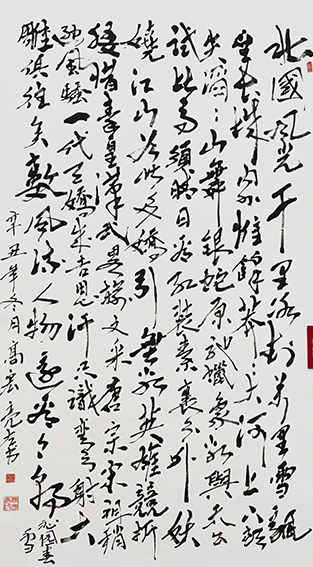 北國风光千里冰封萬里雪飄
望長城內外惟餘莽〻大河上下頓
失滔〻山舞銀蛇原馳蠟象欲與天公
試比高須晴日看紅裝素裹分外妖
嬈江山如此多嬌引無數英雄競折
腰惜秦皇漢武略輸文采唐宗宋祖稍
遜風騷一代天驕成吉思汗只識彎弓射大
雕俱往矣數風流人物還看今朝
沁園春雪
辛丑年冬月高